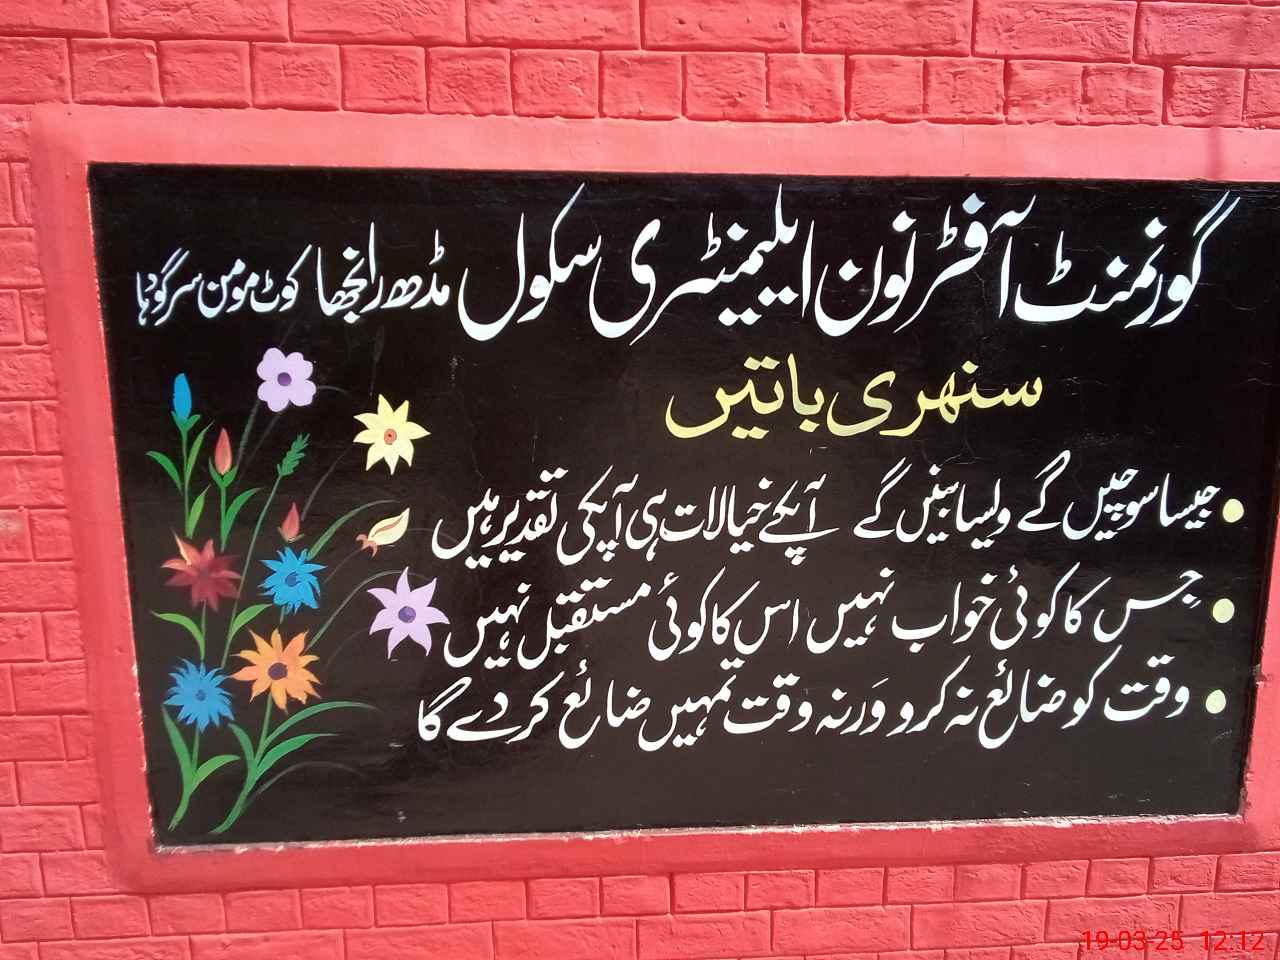 گورنمنٹ آفٹر نون ایلیمنٹری سکول مڈھ رانجھا کوٹ مومن سرگودہا
سنھری باتیں
جیسا سوچیں گے ویسا بنیں گے آپکے خیالات ہی آپکی تقدیر ہیں
جِس کا کوئی خواب نہیں اس کا کوئی مستقبل نہیں
وقت کو ضائع نہ کرو وَرنہ وقت تمہیں ضائع کر دے گا
19-03-25 12:12